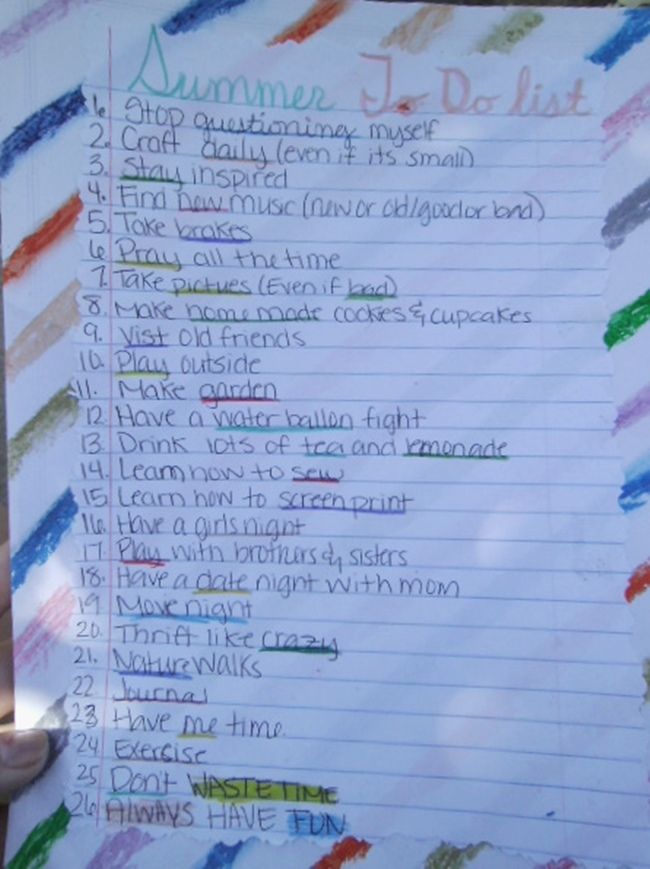 Summer To Do list
1. Stop questioning myself
2. Craft daily (even if its small)
3. Stay inspired
4. Find new music (new or old/good or bad)
5. Take brakes
6. Pray all the time
7. Take pictues (Even if bad)
8. Make home made cookies & cupcakes
9. Vist old friends
10. Play outside
11. Make garden
12. Have a water ballon fight
13. Drink lots of tea and lemonade
14. Learn how to sew
15. Learn how to screen print
16. Have a girls night
17. Play with brothers & sisters
18. Have a date night with mom
19. Movie night
20. Thrift like crazy
21. Nature walks
22. Journal
23. Have me time.
24. Exercise
25. Don't WASTE TIME
26. ALWAYS HAVE FUN